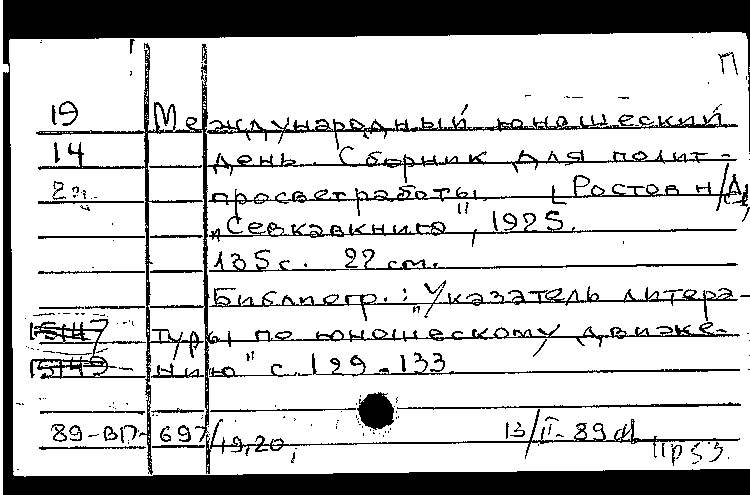 П
19 Международный юношеский
14 день. Сборник для полит-
просветработы. [Ростов н/Д,
„Севкавкнига", 1925.
135 с. 22 см.
Библиогр.: „Указатель литера-
15147 туры по юношескому движе-
15149 нию" с. 129-133.
89-ВП-697/19,20, 13/II-89
Пр53.